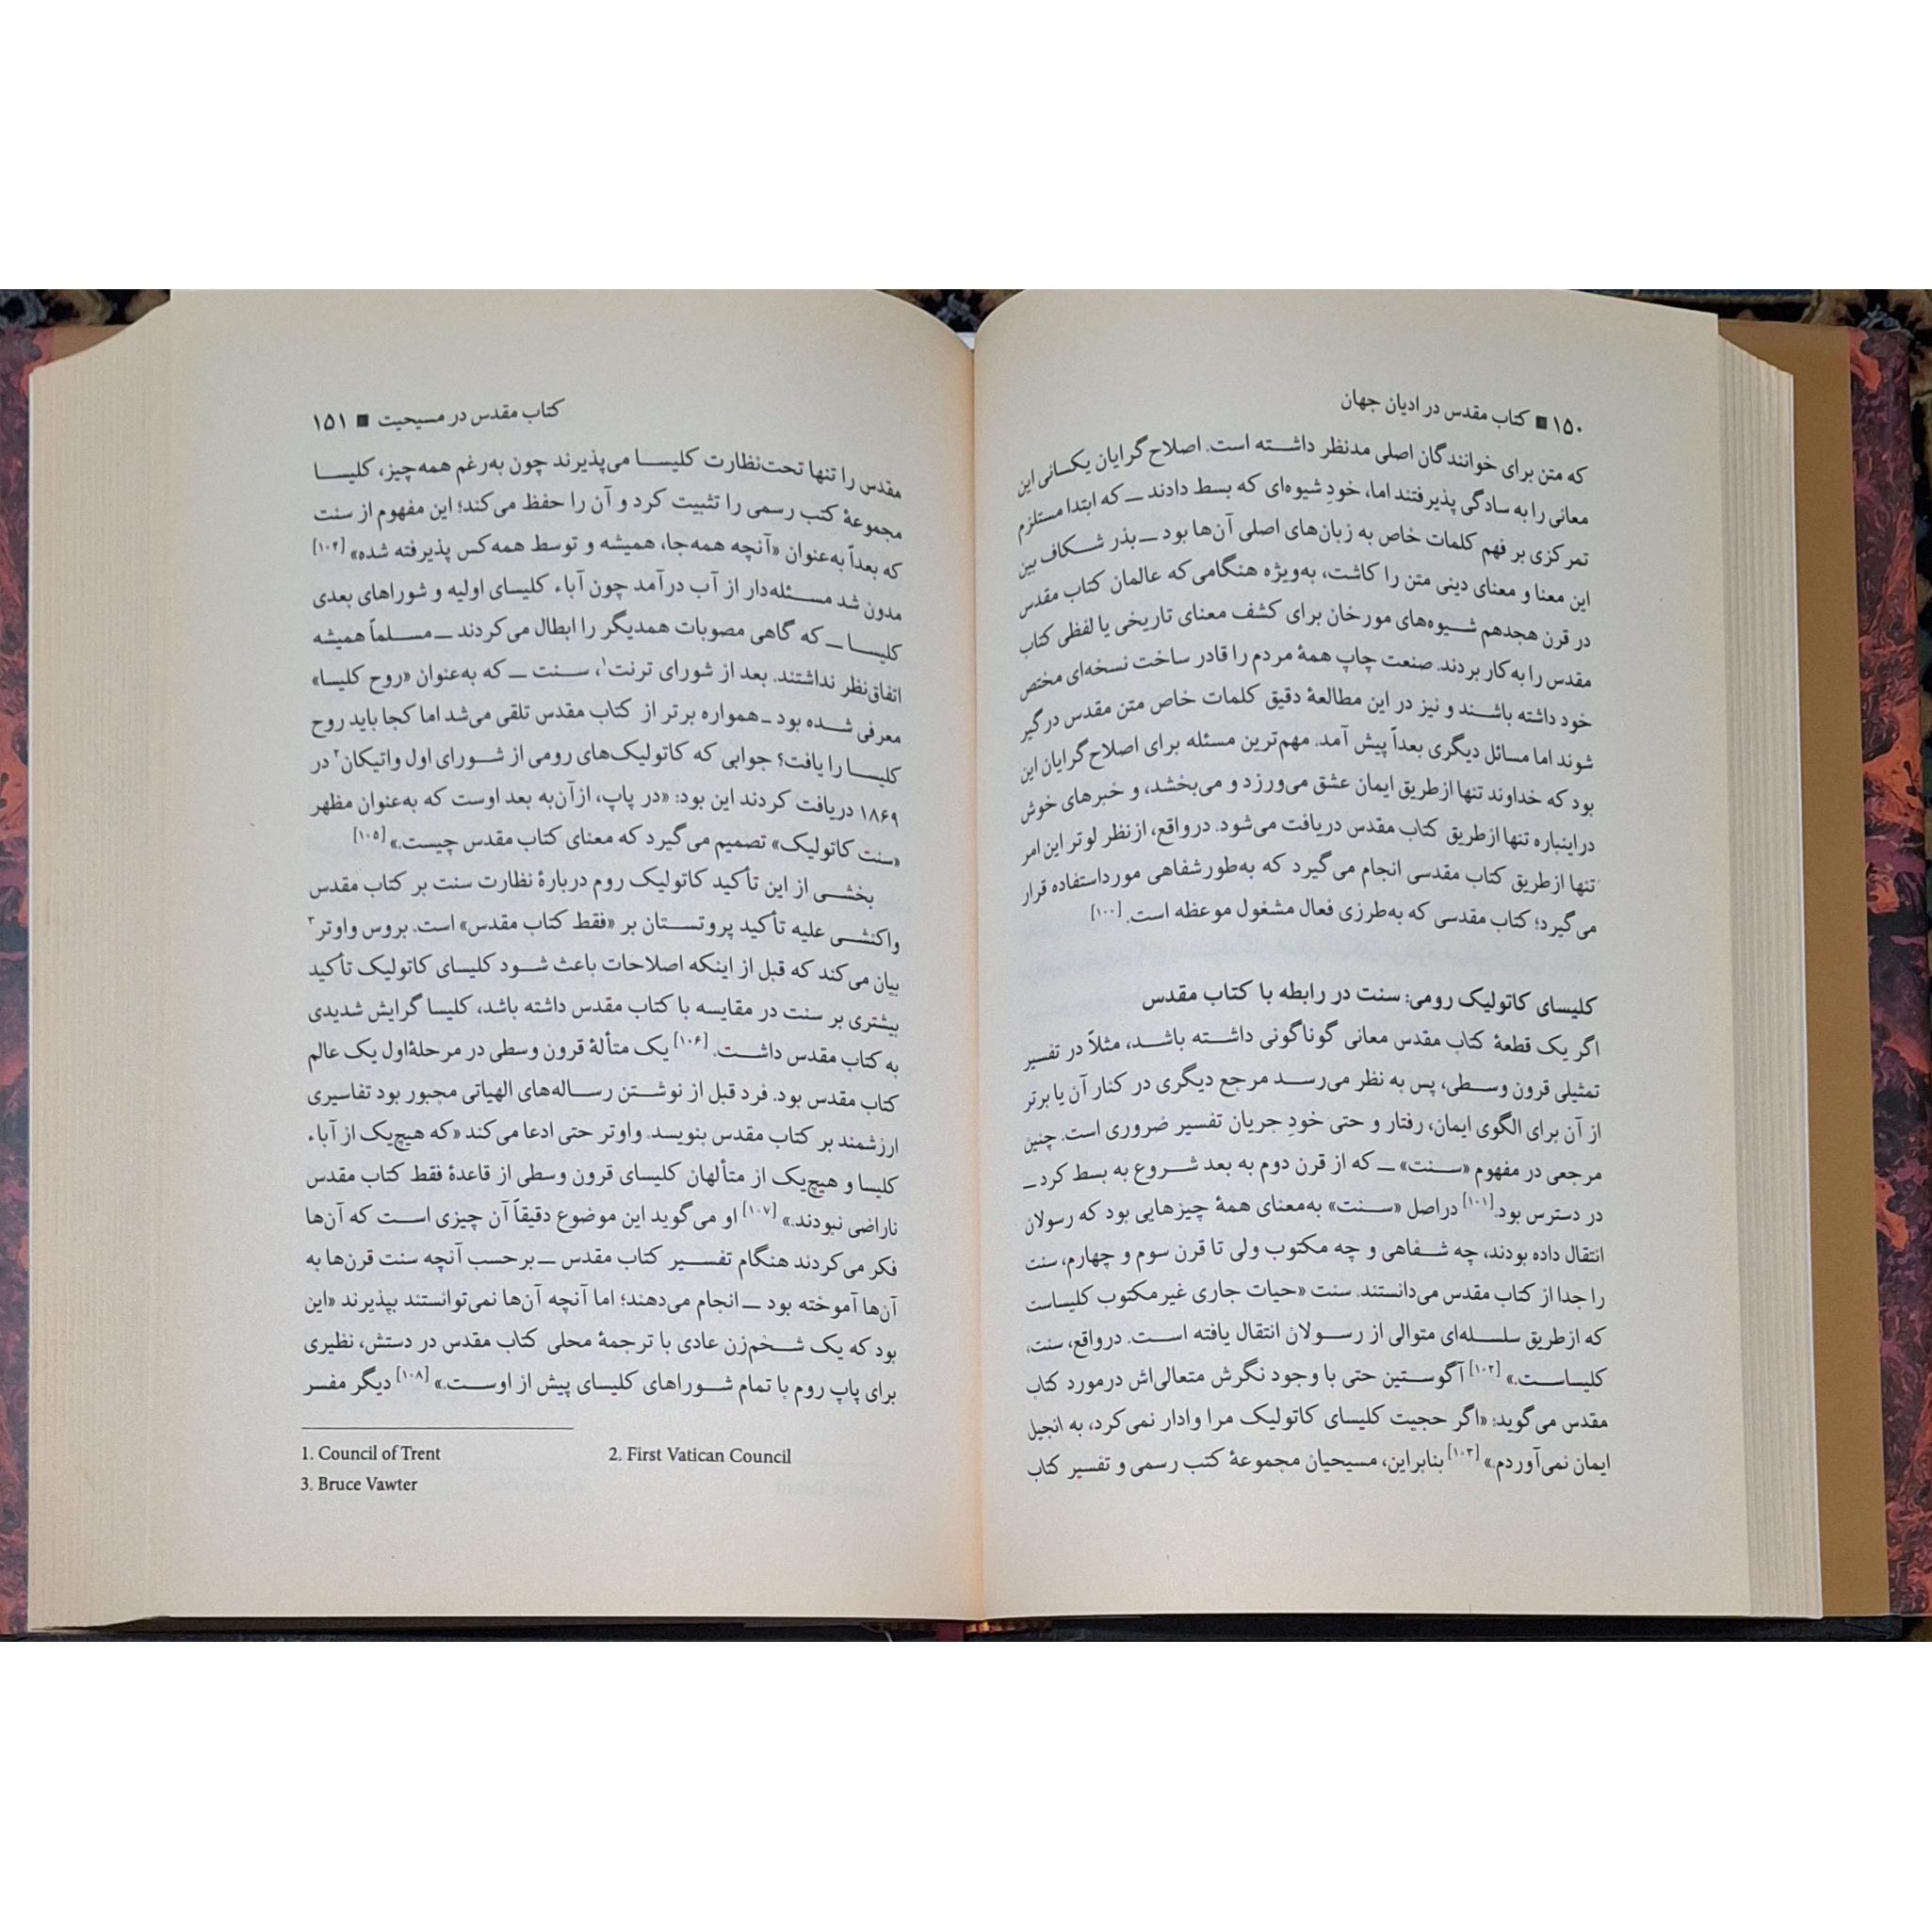 ۱۵۰ ■ کتاب مقدس در ادیان جهان
که متن برای خوانندگان اصلی مدنظر داشته است. اصلاح‌گرایان یکسانی این
معانی را به سادگی پذیرفتند اما، خودِ شیوه‌ای که بسط دادند ــ که ابتدا مستلزم
تمرکزی بر فهم کلمات خاص به زبان‌های اصلی آن‌ها بود ــ بذر شکاف بین
این معنا و معنای دینی متن را کاشت، به‌ویژه هنگامی‌که عالمان کتاب مقدس
در قرن هجدهم شیوه‌های مورخان برای کشف معنای تاریخی یا لفظی کتاب
مقدس را به‌کار بردند. صنعت چاپ همهٔ مردم را قادر ساخت نسخه‌ای مختص
خود داشته باشند و نیز در این مطالعهٔ دقیق کلمات خاص متن مقدس درگیر
شوند اما مسائل دیگری بعداً پیش آمد. مهم‌ترین مسئله برای اصلاح‌گرایان این
بود که خداوند تنها ازطریق ایمان عشق می‌ورزد و می‌بخشد، و خبرهای خوش
دراینباره تنها ازطریق کتاب مقدس دریافت می‌شود. درواقع، ازنظر لوتر این امر
تنها ازطریق کتاب مقدسی انجام می‌گیرد که به‌طورشفاهی مورداستفاده قرار
می‌گیرد؛ کتاب مقدسی که به‌طرزی فعال مشغول موعظه است. [۱۰۰]
کلیسای کاتولیک رومی: سنت در رابطه با کتاب مقدس
اگر یک قطعهٔ کتاب مقدس معانی گوناگونی داشته باشد، مثلاً در تفسیر
تمثیلی قرون وسطی، پس به نظر می‌رسد مرجع دیگری در کنار آن یا برتر
از آن برای الگوی ایمان، رفتار و حتی خودِ جریان تفسیر ضروری است. چنین
مرجعی در مفهوم «سنت» ــ که از قرن دوم به بعد شروع به بسط کرد ــ
در دسترس بود.[۱۰۱] دراصل «سنت» به‌معنای همهٔ چیزهایی بود که رسولان
انتقال داده بودند، چه شفاهی و چه مکتوب ولی تا قرن سوم و چهارم، سنت
را جدا از کتاب مقدس می‌دانستند. سنت «حیات جاری غیرمکتوب کلیساست
که ازطریق سلسله‌ای متوالی از رسولان انتقال یافته است. درواقع، سنت،
کلیساست.» [۱۰۲] آگوستین حتی با وجود نگرش متعالی‌اش درمورد کتاب
مقدس می‌گوید: «اگر حجیت کلیسای کاتولیک مرا وادار نمی‌کرد، به انجیل
ایمان نمی‌آوردم.» [۱۰۳] بنابراین، مسیحیان مجموعهٔ کتب رسمی و تفسیر کتاب
کتاب مقدس در مسیحیت ■ ۱۵۱
مقدس را تنها تحت‌نظارت کلیسا می‌پذیرند چون به‌رغم همه‌چیز، کلیسا
مجموعهٔ کتب رسمی را تثبیت کرد و آن را حفظ می‌کند؛ این مفهوم از سنت
که بعداً به‌عنوان «آنچه همه‌جا، همیشه و توسط همه‌کس پذیرفته شده» [۱۰۴]
مدون شد مسئله‌دار از آب درآمد چون آباء کلیسای اولیه و شوراهای بعدی
کلیسا ــ که گاهی مصوبات همدیگر را ابطال می‌کردند ــ مسلماً همیشه
اتفاق‌نظر نداشتند. بعد از شورای ترنت۱، سنت ــ که به‌عنوان «روح کلیسا»
معرفی شده بود ـ همواره برتر از کتاب مقدس تلقی می‌شد اما کجا باید روح
کلیسا را یافت؟ جوابی که کاتولیک‌های رومی از شورای اول واتیکان۲ در
۱۸۶۹ دریافت کردند این بود: «در پاپ، ازآن‌به بعد اوست که به‌عنوان مظهر
«سنت کاتولیک» تصمیم می‌گیرد که معنای کتاب مقدس چیست.» [۱۰۵]
بخشی از این تأکید کاتولیک روم دربارهٔ نظارت سنت بر کتاب مقدس
واکنشی علیه تأکید پروتستان بر «فقط کتاب مقدس» است. بروس واوتر۳
بیان می‌کند که قبل از اینکه اصلاحات باعث شود کلیسای کاتولیک تأکید
بیشتری بر سنت در مقایسه با کتاب مقدس داشته باشد، کلیسا گرایش شدیدی
به کتاب مقدس داشت. [۱۰۶] یک متألهٔ قرون وسطی در مرحلهٔ‌اول یک عالم
کتاب مقدس بود. فرد قبل از نوشتن رساله‌های الهیاتی مجبور بود تفاسیری
ارزشمند بر کتاب مقدس بنویسد. واوتر حتی ادعا می‌کند «که هیچ‌یک از آباء
کلیسا و هیچ‌یک از متألهان کلیسای قرون وسطی از قاعدهٔ فقط کتاب مقدس
ناراضی نبودند.» [۱۰۷] او می‌گوید این موضوع دقیقاً آن چیزی است که آن‌ها
فکر می‌کردند هنگام تفسیر کتاب مقدس ــ برحسب آنچه سنت قرن‌ها به
آن‌ها آموخته بود ــ انجام می‌دهند؛ اما آنچه آن‌ها نمی‌توانستند بپذیرند «این
بود که یک شخم‌زن عادی با ترجمهٔ محلی کتاب مقدس در دستش، نظیری
برای پاپ روم با تمام شوراهای کلیسای پیش از اوست.» [۱۰۸] دیگر مفسر
1. Council of Trent 2. First Vatican Council
3. Bruce Vawter